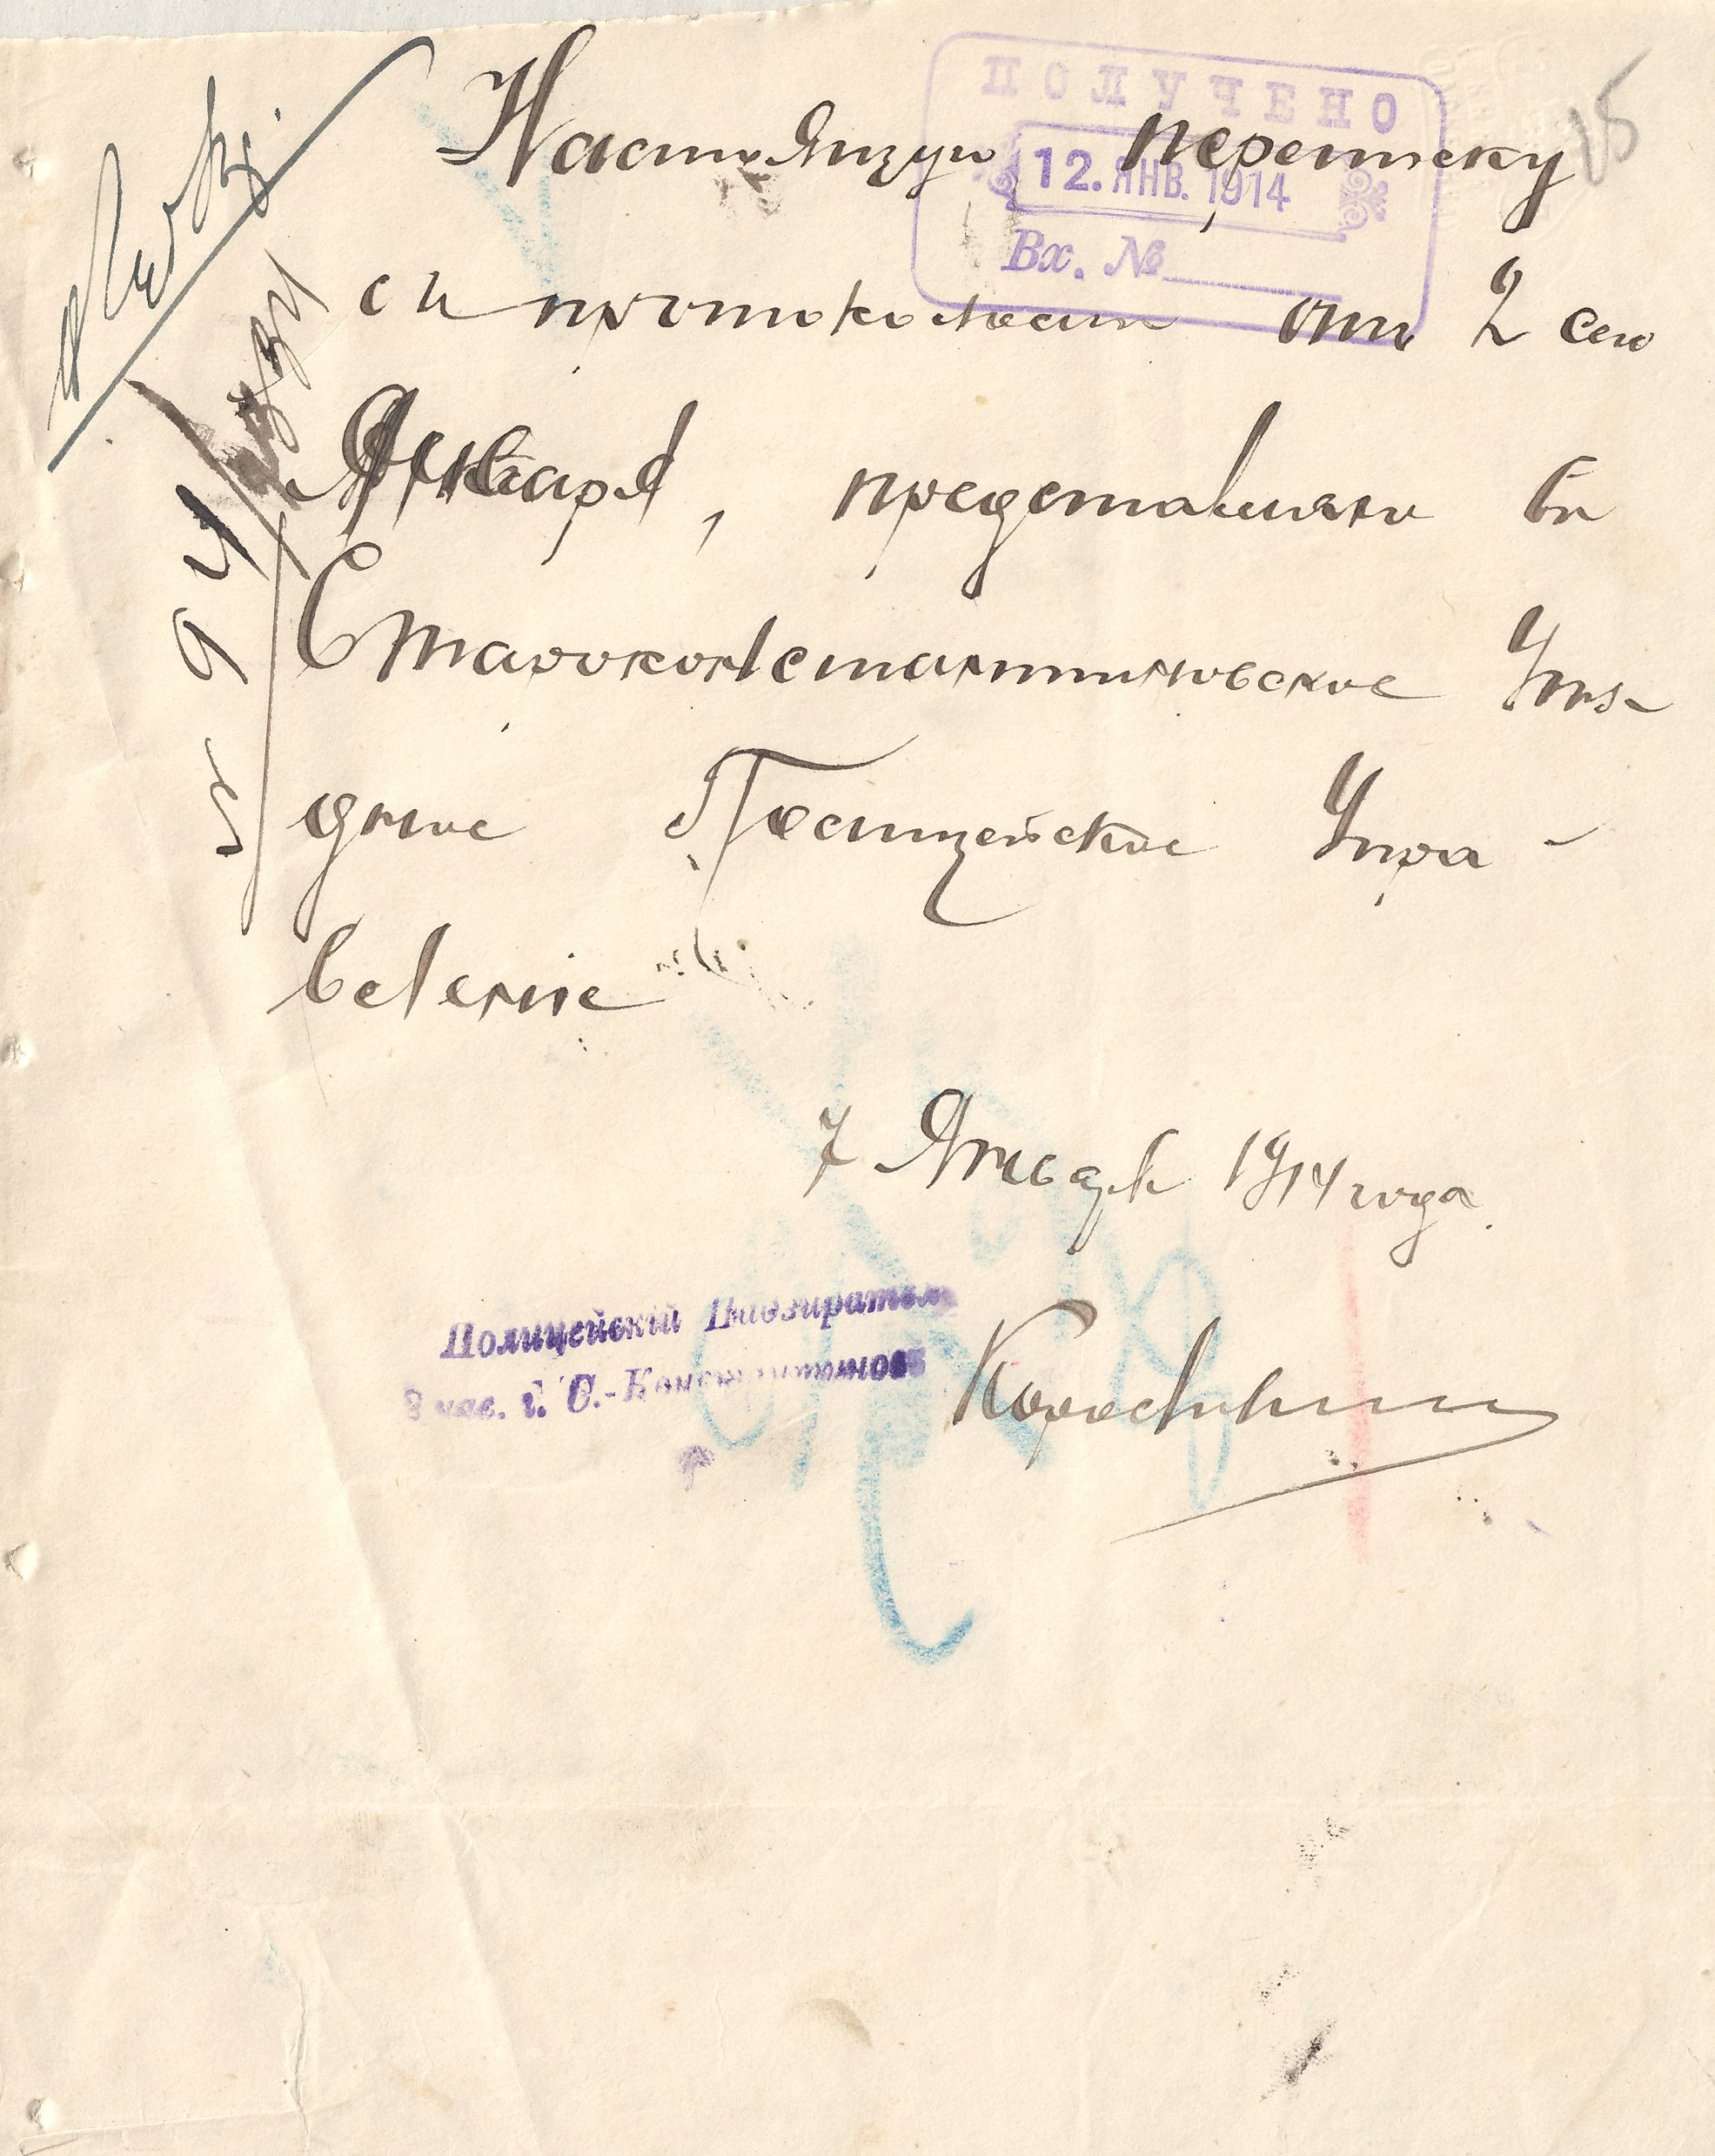 ПОЛУЧЕНО
12. ЯНВ. 1914
Вх. №
15
Настоящую переписку
съ протоколомъ отъ 2 сего
Января, представляю въ
Староконстантиновское Уѣз-
дное Полицейское Упра-
вленіе
7 Января 1914 года.
Полицейскій Надзиратель
3 час. г. С.-Константинова